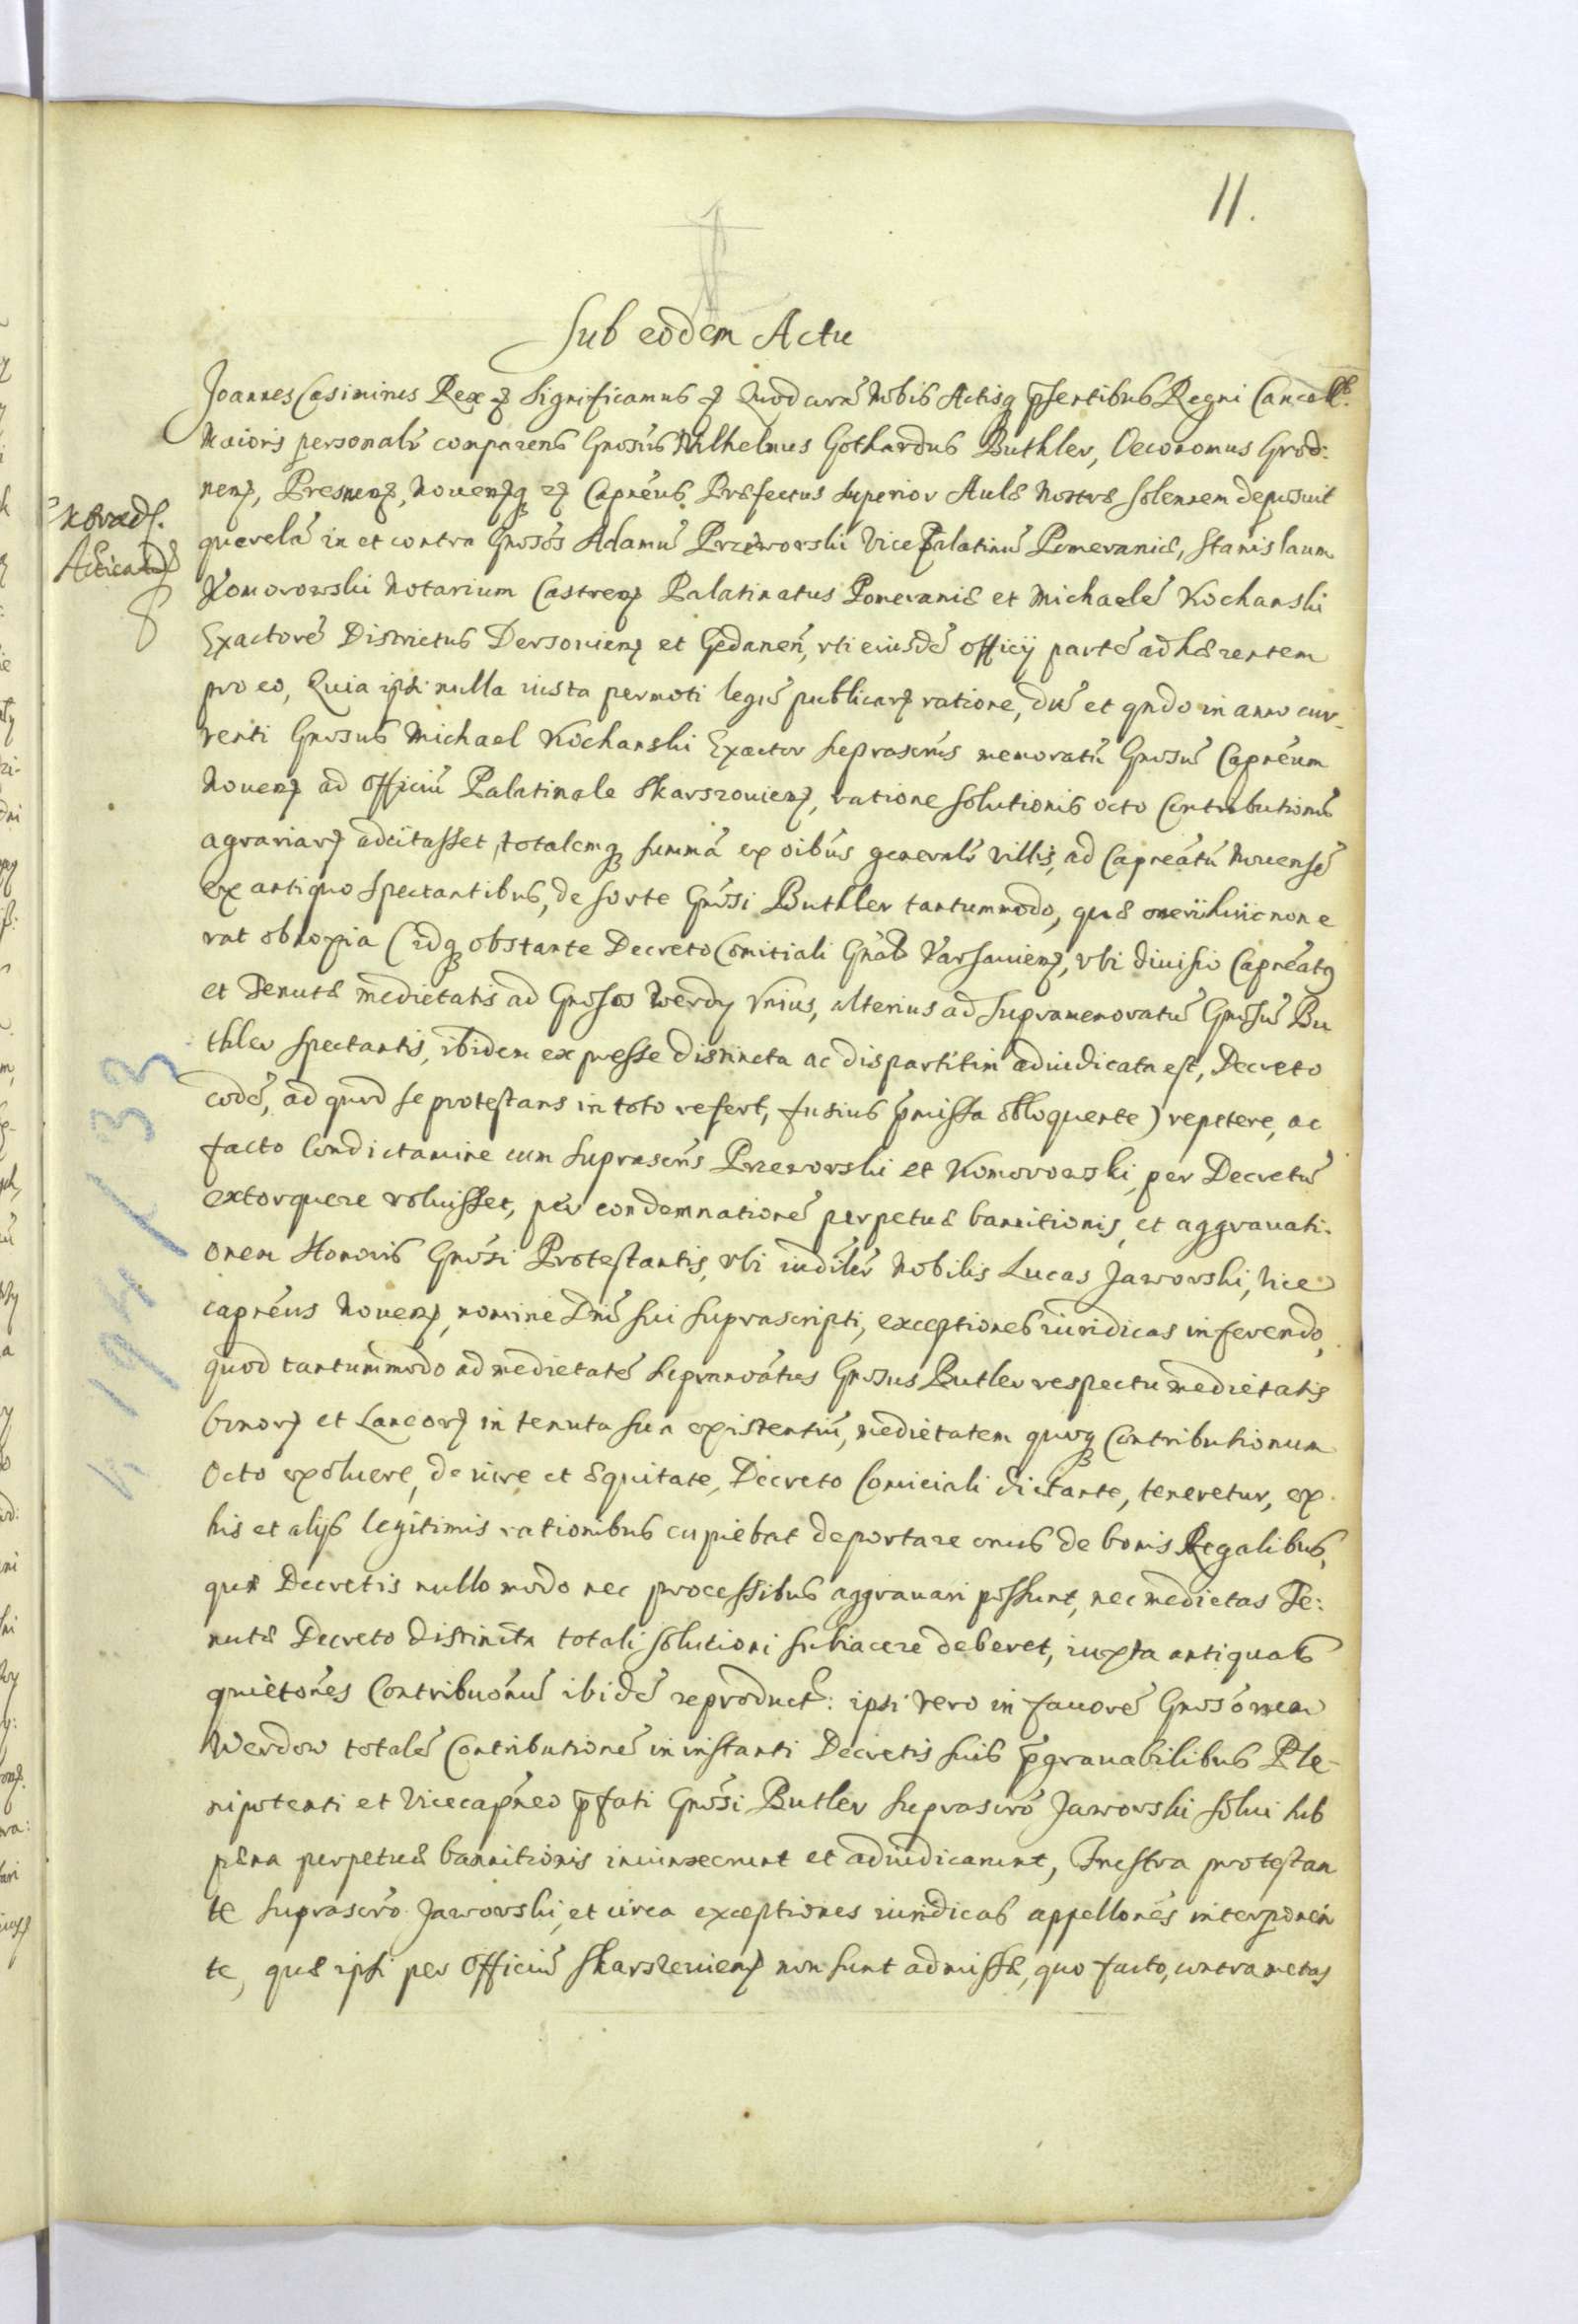 11.
Sub eodem Actu
Joannes Casimirus Rex ꝛ Significamus ꝛ Quod corā Nobis Actisq p̄sentibus Regni Cancell.
Maioris personalr̄ comparens Gnōsus Wilhelmus Gothardus Buthler, Oeconomus Grod:
nenꝭ, Presnenꝭ, Nouenꝭq ꝛꝭ Capnēus Præfectus Superior Aulæ Nostræ solennem deposuit
querelā in et contra Gnōsos Adamū Przeworski Vice Palatinū Pomeraniæ, Stanislaum
Komorowski Notarium Castrenꝭ Palatinatus Pomeraniæ et Michaelē Kochanski
Exactorē Districtus Dersouienꝭ et Gedanen̄, vti eiusdē officij partē adhærentem
pro eo, Quia ipsi nulla iusta permoti legū publicarꝭ ratione, dū et qndo in anno cur-
renti Gnosus Michael Kochanski Exactor suprascr̄us memoratū Gnosū Capnēum
Nouenꝭ ad officiū Palatinale Skarszouienꝭ, ratione solutionis octo Contributionū
agrariarꝭ adcitasset, totalemq summā ex oībus generalr̄ villis, ad Capneātū Nouensē
ex antiquo spectantibus, de sorte Gnōsi Buthler tantummodo, quæ oneri huic non e
rat obnoxia (idq obstante Decreto Comitiali Gnāl Varsauienꝭ, vbi diuisio Capneātꝰ
et Tenutæ medietatis ad Gnosos Werdy Vnius, alterius ad supramemoratū Gnosū Bu
thler spectantis, ibidem expresse distincta ac dispartitim adiudicata est, Decreto
eodē, ad quod se protestans in toto refert, fusius p̄missa obloquente) repetere, ac
facto Condictamine cum suprascr̄is Przeworski et Komorowski, per Decretū
extorquere voluisset, per condemnationē perpetuæ bannitionis, et aggrauati-
onem Honoris Gnōsi Protestantis, vbi iudilr̄ Nobilis Lucas Jaworski, Vice
capnēus Nouenꝭ, nomine Dnī sui suprascripti, exceptiones iuridicas inferendo,
quod tantummodo ad medietatē supranoātus Gnosus Butler respectu medietatis
bonorꝭ et Laneorꝭ in tenuta sua existentiū, medietatem quoq Contributionum
Octo exoluere, de iure et æquitate, Decreto Comiciali dictante, teneretur, ex
his et alijs legitimis rationibus cupiebat deportare onus de bonis Regalibus,
quæ Decretis nullo modo nec processibus aggrauari possunt, nec medietas Te:
nutæ Decreto distincta totali solutioni subiacere deberet, iuxta antiquas
quietōnes Contribuōnū ibidē reproduct: ipsi vero in fauorē Gnosōrum
Werdow totalē Contributionē in instanti Decretis suis p̄grauabilibus Ple-
nipotenti et Vicecapneo p̄fati Gnōsi Butler suprascrō Jaworski solui sub
pæna perpetuæ bannitionis iniunxerunt et adiudicarunt, Frustra protestan
te suprascrō Jaworski, et circa exceptiones iuridicas appellonēs interponēn
te, quæ ipsi per officiū Skarszeuienꝭ non sunt admissæ, quo facto, contra metas
Extrad.
Acticand
h 194 / 33